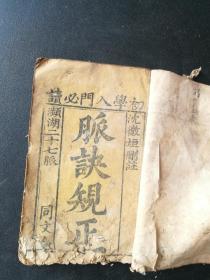 初學入門必讀
沈微垣刪註
脈訣規正
瀕湖二十七脈
同文